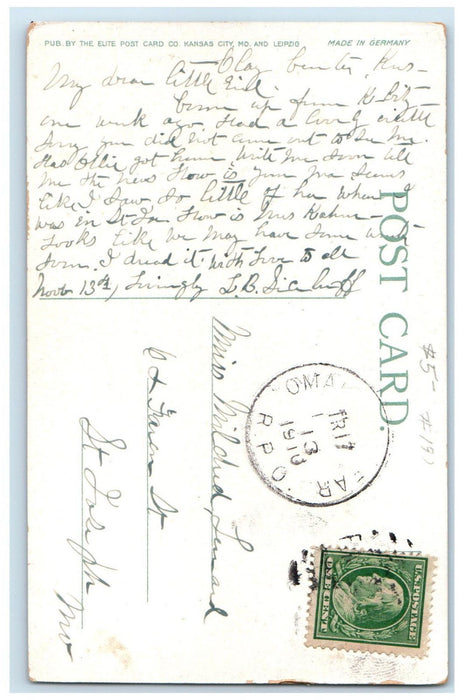 PUB. BY THE ELITE POST CARD CO. KANSAS CITY, MO. AND LEIPZIG
MADE IN GERMANY
Clay Center, Kas-
My dear little Girl.
Came up from K. City
one week ago. Had a
Sorry you did not come out to See Me.
Has Ollie got home. Write Me Soon tell
Me the news How is your Ma Seems
like I Saw So little of her when I
was in St Joe. How is Mrs
Looks like We May have Some
Soon. I dread it. With Love to all
Nov 13th, Lovingly L. B.
POST CARD.
Miss Mildred
St
St Joseph
Mo
OMA
TR 17
1 13
1910
R.P.O.
AR
$5-
U.S. POSTAGE
ONE CENT